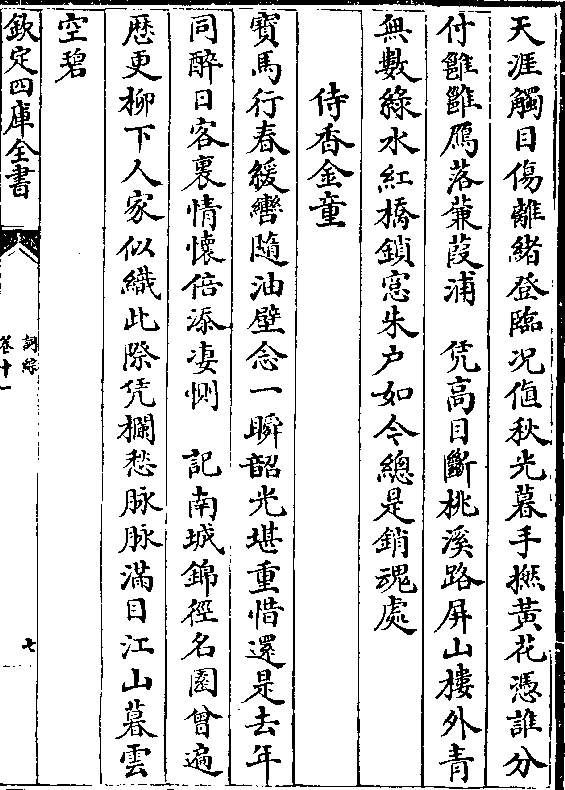 天涯觸目傷離緒登臨況值秋光暮手撚黃花憑誰分
付雝雝鴈落蒹葭浦　凭高目斷桃溪路屏山樓外青
無數綠水紅橋鎖窓朱户如今總是銷魂處
侍香金童
寶馬行春緩轡隨油壁念一瞬韶光堪重惜還是去年
同醉日客裏情懷倍添凄惻　記南城錦徑名園曾遍
厯更柳下人家似織此際凭欄愁脉脉滿目江山暮雲
空碧
欽定四庫全書
詞綜
卷十一
七